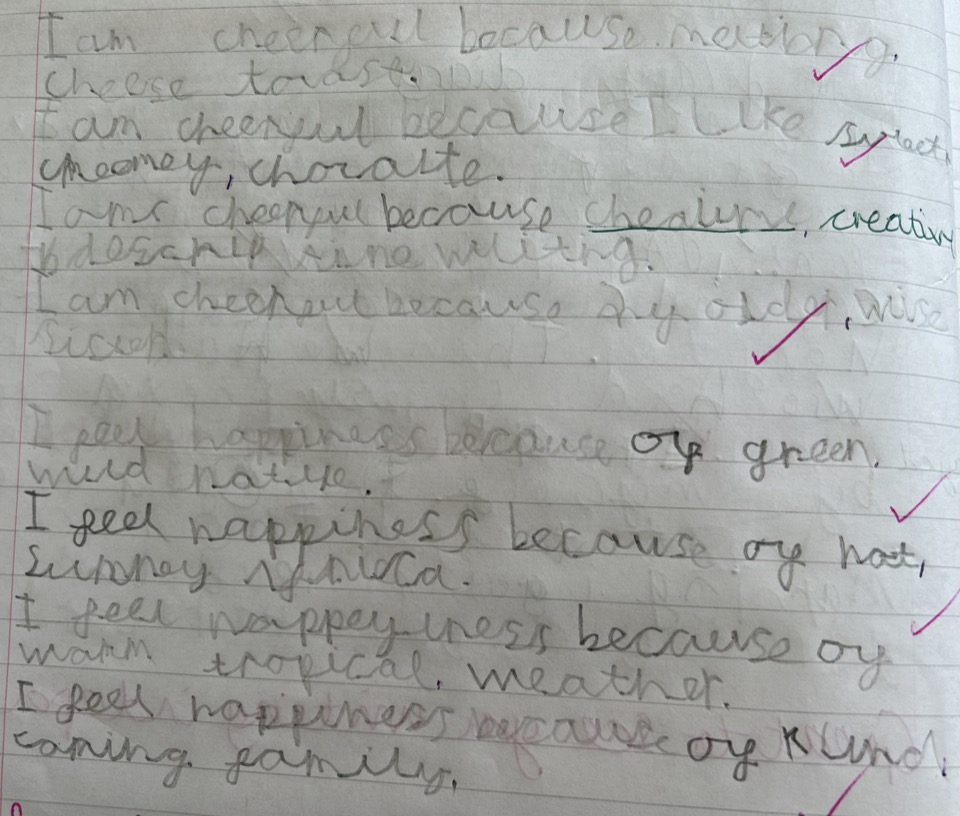 I am cheerful because melting,
cheese toast.
I am cheerful because I like sweet,
chocolate.
I am cheerful because creative
writing.
I am cheerful because my older, wise
sister.
I feel happiness because of green,
wild nature.
I feel happiness because of hot,
sunney Africa.
I feel happeyness because of
warm tropical, weather.
I feel happiness because of kind,
caring family.